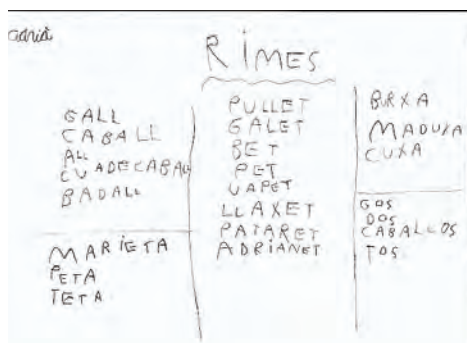 adrià
RIMES
GALL
CABALL
ALL
CUADECABALL
BADALL
MARIETA
PETA
TETA
PULLET
GALET
BET
PET
VAPET
LLAXET
PATARET
ADRIANET
BURXA
MADUXA
CUXA
GOS
DOS
CABALLOS
TOS